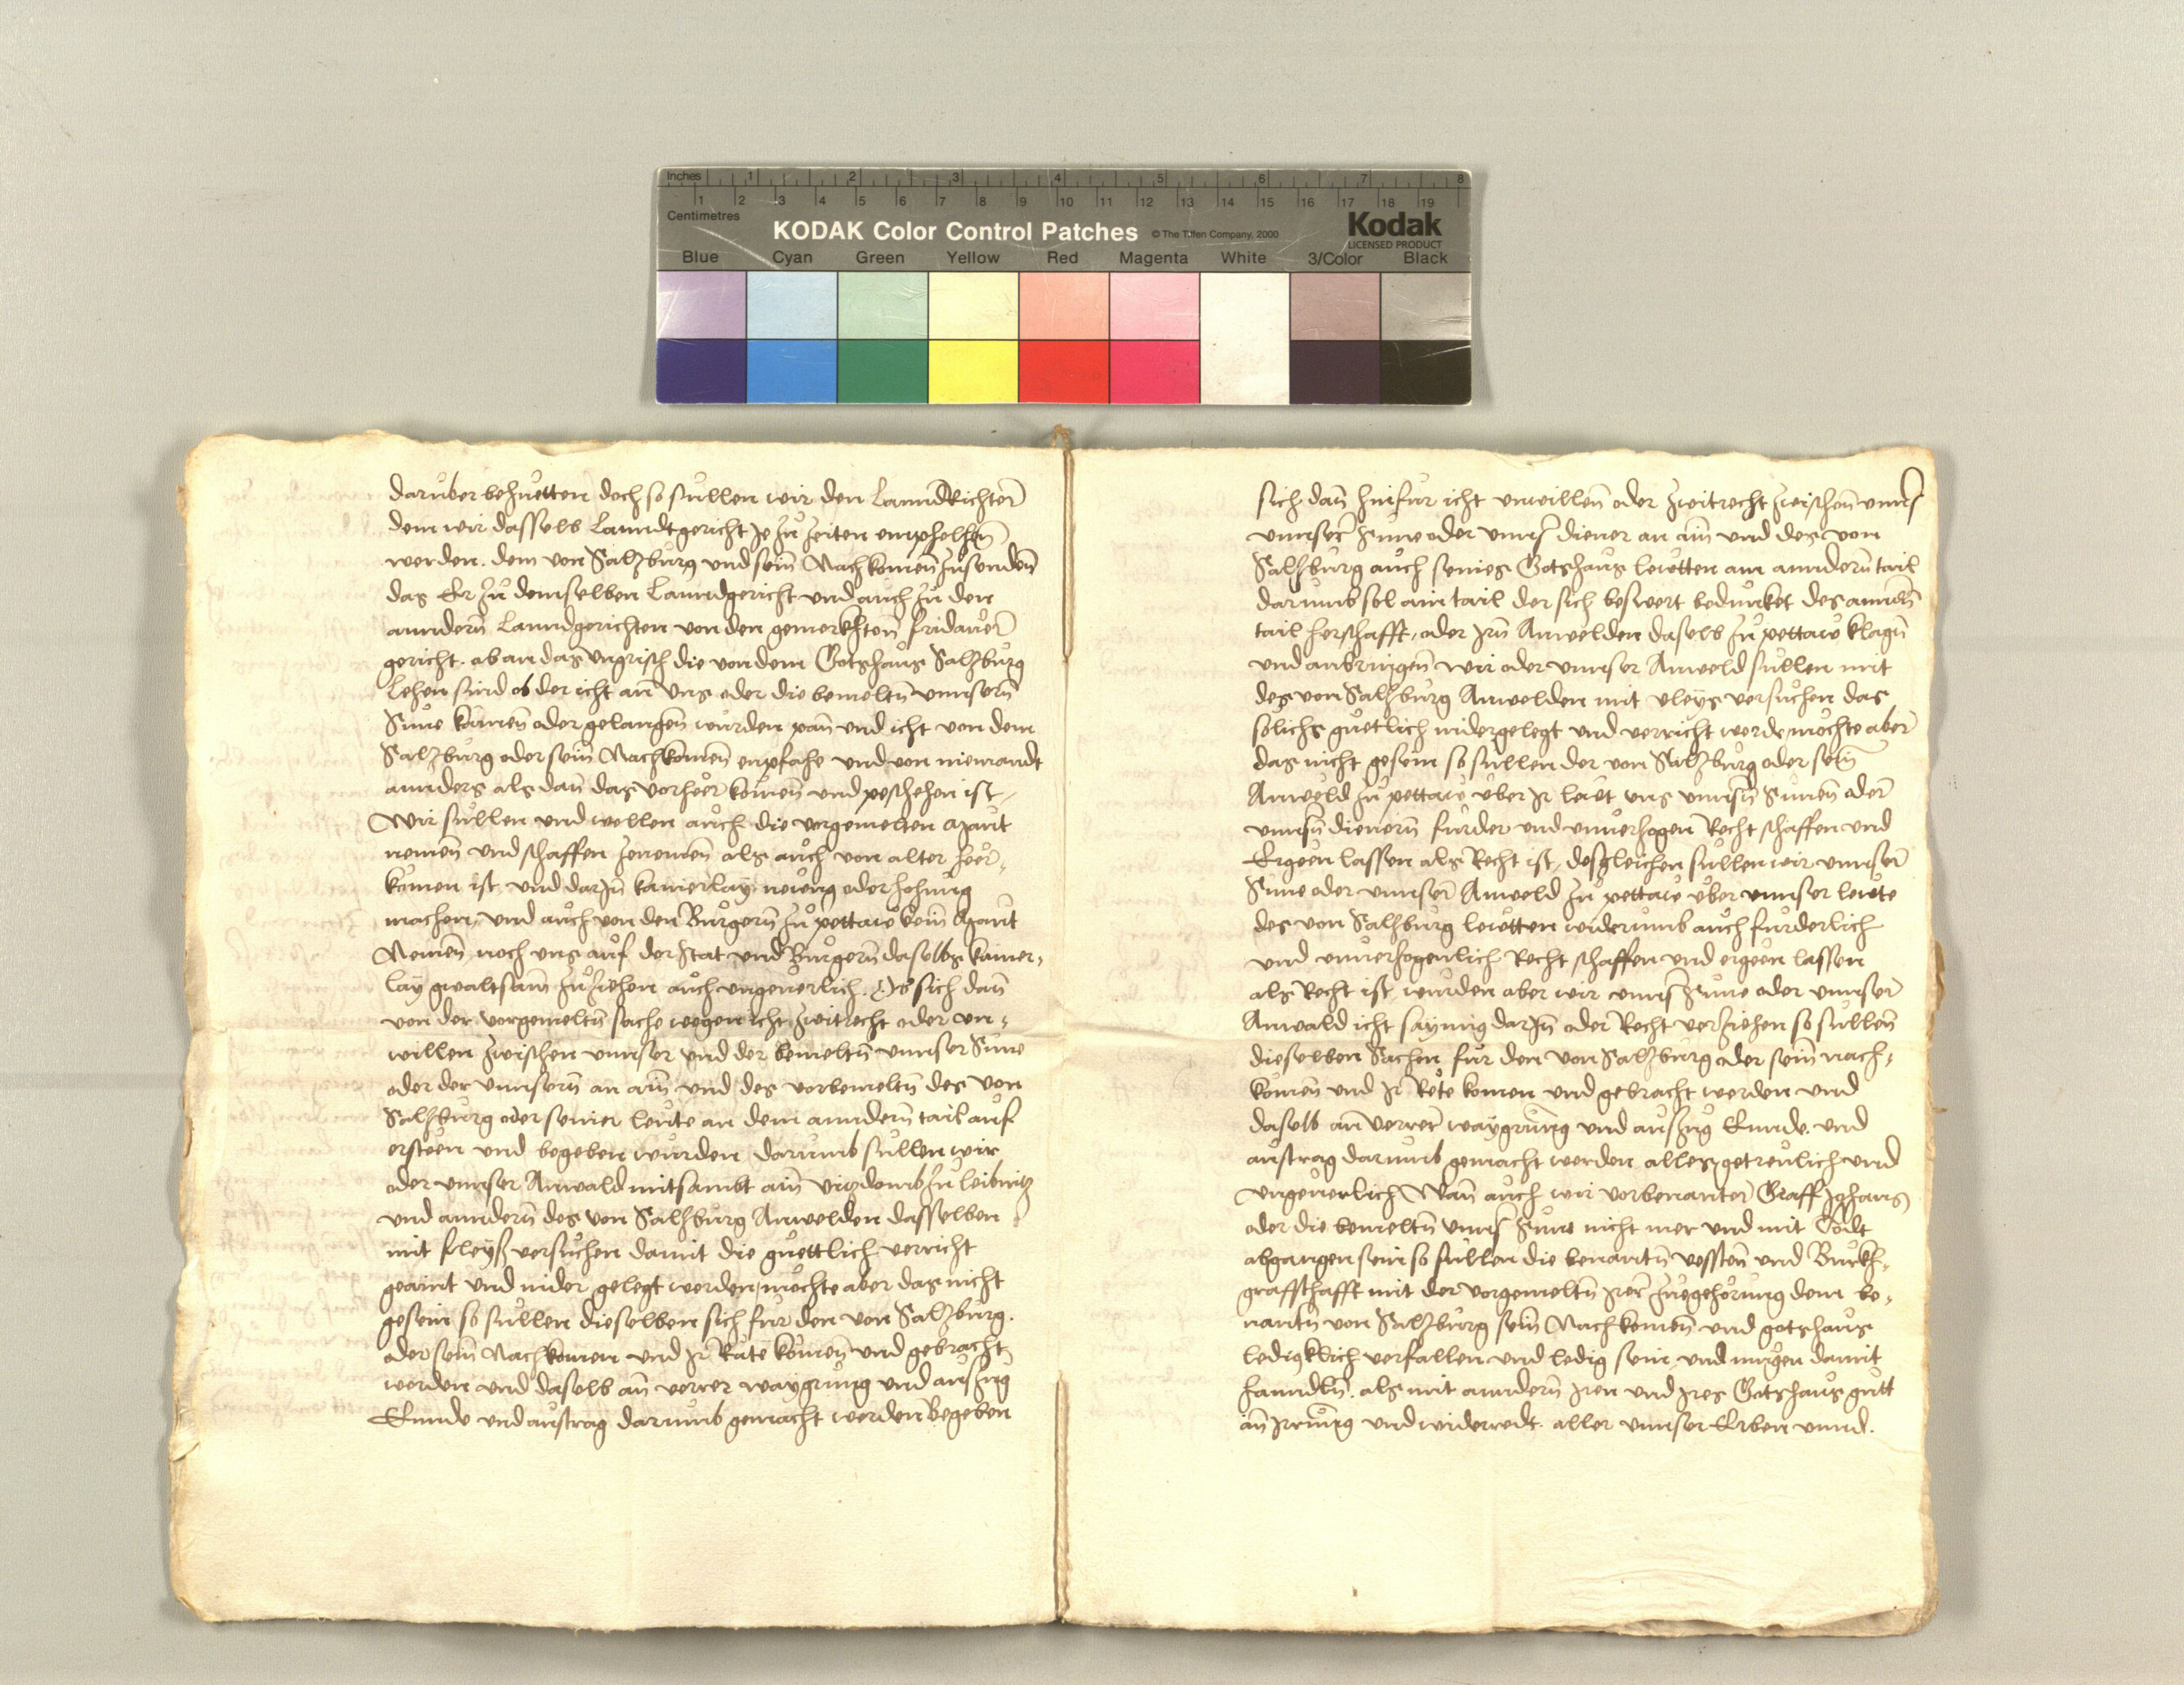 Inches 1 2 3 4 5 6 7 8
1 2 3 4 5 6 7 8 9 10 11 12 13 14 15 16 17 18 19
Centimetres
KODAK Color Control Patches © The Tiffen Company, 2000 Kodak
LICENSED PRODUCT
Blue Cyan Green Yellow Red Magenta White 3/Color Black
daruber behuetten doch so sullen wir den Lanndtrichter
dem wir dasselb Lanndtgericht ye zu zeiten emphelhen
werden. dem von Salzburg und sein Nachkomen zusenden
das Er zu demselben Lanndgericht und auch zu den
anndern Lanndgerichten von den gemerkhten fridawer
gericht. ab an das ungrisch die von dem Gotshaus Salzburg
Lehen sind ob der icht an uns oder die bemeltn unnsern
Sune kömen oder gelangen wurden pan und icht von dem
Salzburg oder sein Nachkomen enpfahe und von niemandt
annders als dan das vorheer komen und peschehen ist,
Wir sullen und wellen auch die vorgemelten Maut
nemen und schaffen zenemen als auch von alter heer-
komen ist und darzu kainerlay newng oder hohung
machen, und auch von den Burgern zu pettaw kein Maut
Nemen noch uns auf der Stat und Burgern daselbs kainer-
lay gwaltsam zuziehen auch ungeuerlich. Ob sich dan
von der vorgemeltn sache wegen icht zwitrecht oder un-
willen zwischen unnser und der bemeltn unnser Sune
oder der unnsern an ain und des vorbemeltn des von
Salzburg oder seiner leute an dem anndern tail auf
ersteen und begeben wurden darumb sullen wir
oder unnser Anwald mitsambt ain vitzdomb zu leibnitz
und anndern des von Salzburg Anwelden dasselben
mit fleyß versuchen damit die guettlich verricht
geaint und nider gelegt werden, mochte aber das nicht
gesein so sullen dieselben sich fur den von Salzburg.
oder sein Nachkomen und ir Räte komen und gebracht
werden und daselb an verrer waygrung und auszug
Ennde und austrag darumb gemacht werden begeben
sich dan hinfur icht unwillen oder zwitrecht zwischen unns
unnser Sune oder unnser diener an ain und des von
Salzburg auch seines Gotshaus lewtten am anndern tail
darumb sol ain tail der sich beswert bedunket des anndn
tail herschafft, oder irn Anwelden daselb zu pettaw klagn
und anbringen wir oder unnser Anweld sullen mit
des von Salzburg Anwelden mit vleys versuchen das
solichs guetlich nidergelegt und verricht werde, mochte aber
das nicht gesein so sullen der von Salzburg oder sein
Anweld zu pettaw uber ir lewt uns unnsn Sunen oder
unnsn dienern furder und unuerzogen Recht schaffen und
Ergeen lassen als Recht ist, desgleichen sullen wir unnser
Sune oder unnser Anweld zu pettaw uber unnser lewte
des von Salzburg lewtten widerumb auch furderlich
und unuerzogenlich Recht schaffen und ergeen lassen
als Recht ist wurden aber wir unns Sune oder unnser
Anwald icht saymig darzu oder Recht verziehen so sullen
dieselben Sachen fur den von Salzburg oder sein nach-
komen und ir Rete komen und gebracht werden und
daselb an verrer waygrung und auszug Ennde und
austrag darumb gemacht werden alles getreulich und
ungeuerlich Wan auch wir vorbenanter Graff Johans
oder die bemeltn unns Sune nicht mer und mit Todt
abgangen sein so sullen die benantn vessten und Burkh-
graffschafft mit der vorgemeltn irer zuegehorung dem be-
nantn von Salzburg sein Nachkomen und gotshaus
ledigklich verfallen und ledig sein und mugen damit
hanndln. als mit anndern iren und ires Gotshaus gutt
an irrung und widerredt. aller unnser Erben unnd.